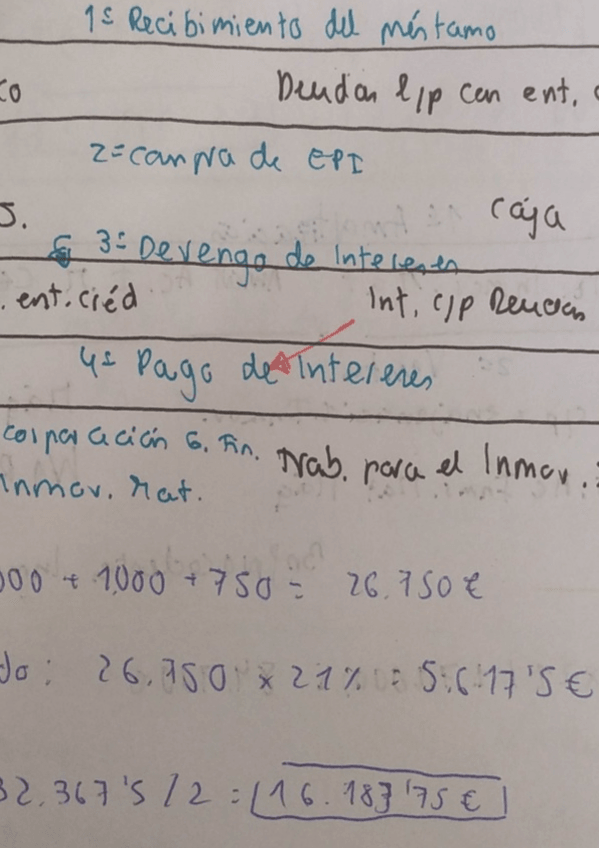 1º Recibimiento del préstamo
co Deudas l/p con ent. c
2º compra de EPI
s. Caja
3º Devengo de Intereses
. ent. créd Int. c/p Deudas
4º Pago de Intereses
corporación G. Fin. Trab. para el Inmov.
Inmov. Mat.
000 + 1,000 + 750 = 26.750 €
do: 26.750 x 21% = 5.617'5 €
32.367'5 / 2 = 16.183'75 €